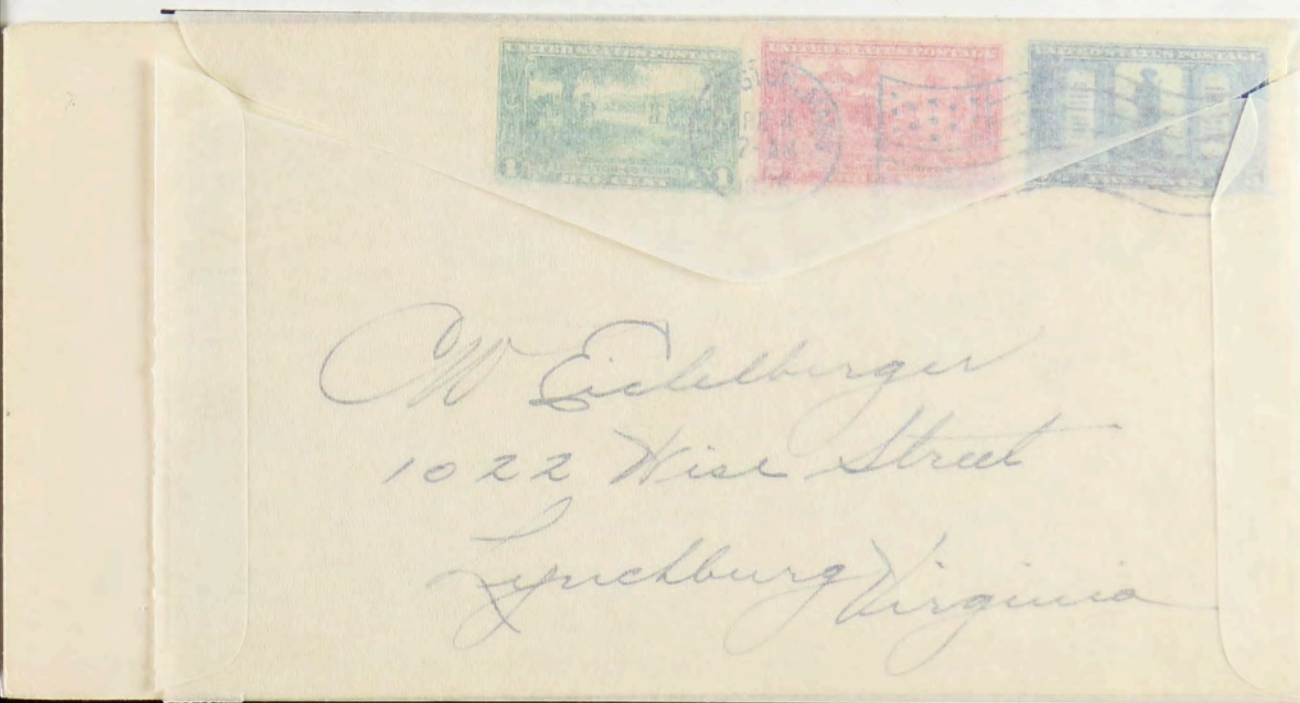 UNITED STATES POSTAGE UNITED STATES POSTAGE UNITED STATES POSTAGE
1 1
CW Eichelberger
1022 Wise Street
Lynchburg Virginia